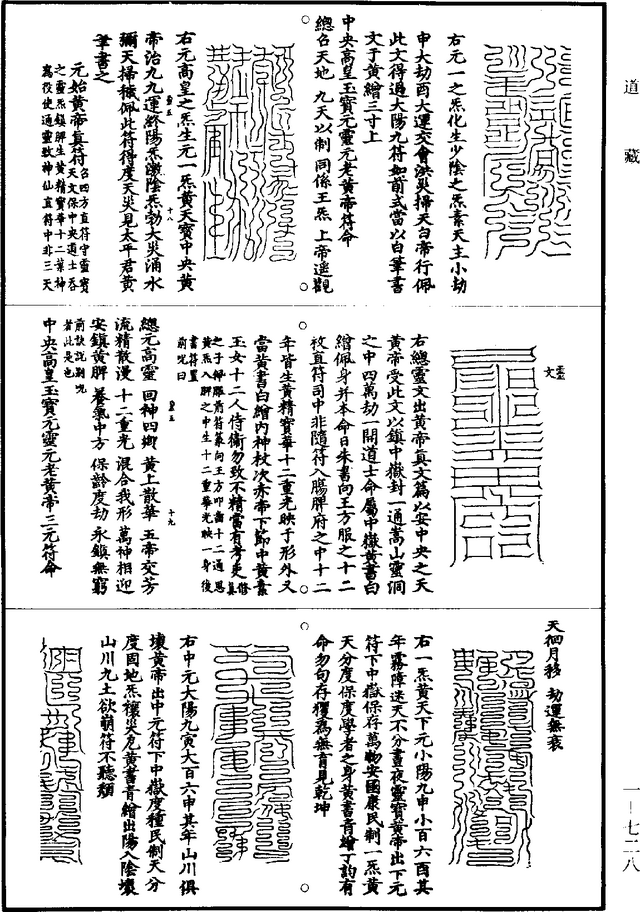 道藏
右元一之炁化生少陰之炁素天主小劫
申大劫酉大運交會洪災掃天白帝行佩
此文得過大陽九符如前式當以白筆書
文于黃繒三寸上
中央高皇玉寶元靈元老黃帝符命
總召天地 九天以制 同係王炁 上帝遥觀
右元高皇之炁生元一炁黃天寶中央黃
帝治九九運終陽炁激陰炁勃大災涌水
彌天掃穢佩此符得度天災見太平君黃
筆書之
元始黃帝真符
召四方直符守靈寶
天文保中央道士吞
之靈炁鎮脾生黃精寶華十二葉神
爲役使通靈致神仙直符中非三天
皇五
十八
靈文
右總靈文出黃帝真文篇以安中央之天
黃帝受此文以鎮中嶽封一通嵩山靈洞
之中四萬劫一開道士命屬中嶽黃書白
繒佩身并本命日朱書向王方服之十二
枚直符司中非隨符入腸脾府之中十二
年皆生黃精寶華十二重光映子形外又
當黃書白繒内神杖次赤帝下節中黃素
玉女十二人侍衞勿致不精當有考吏
之于掃除前符篆向王方叩齒十二通思
黃炁入脾之中生十二重華光映一身後
書符置
前呪曰
總元高靈 回神四鄉 黃上散華 五帝交芳
流精散漫 十二重光 混合我形 萬神相迎
安鎮黃脾 養氣中方 保齡度劫 永鎮無窮
前訣說剛呪
者此是也
中央高皇玉寶元靈元老黃帝三元符命
皇五
十九
天徊月移 劫運無衰
右一炁黃天下元小陽九申小百六酉其
年霧障迷天不分晝夜靈寶黃帝出下元
符下中嶽保存萬物安國康民制一炁黃
天分度保度學者之身黃書青繒了韵有
命勿句存櫻爲無育見乾坤
右中元大陽九寅大百六申其年山川俱
壞黃帝出中元符下中嶽度種民制天分
度固地炁穰災危黃書青繒出陽入陰壞
山川九土欲崩符不聽頽
一—七二八